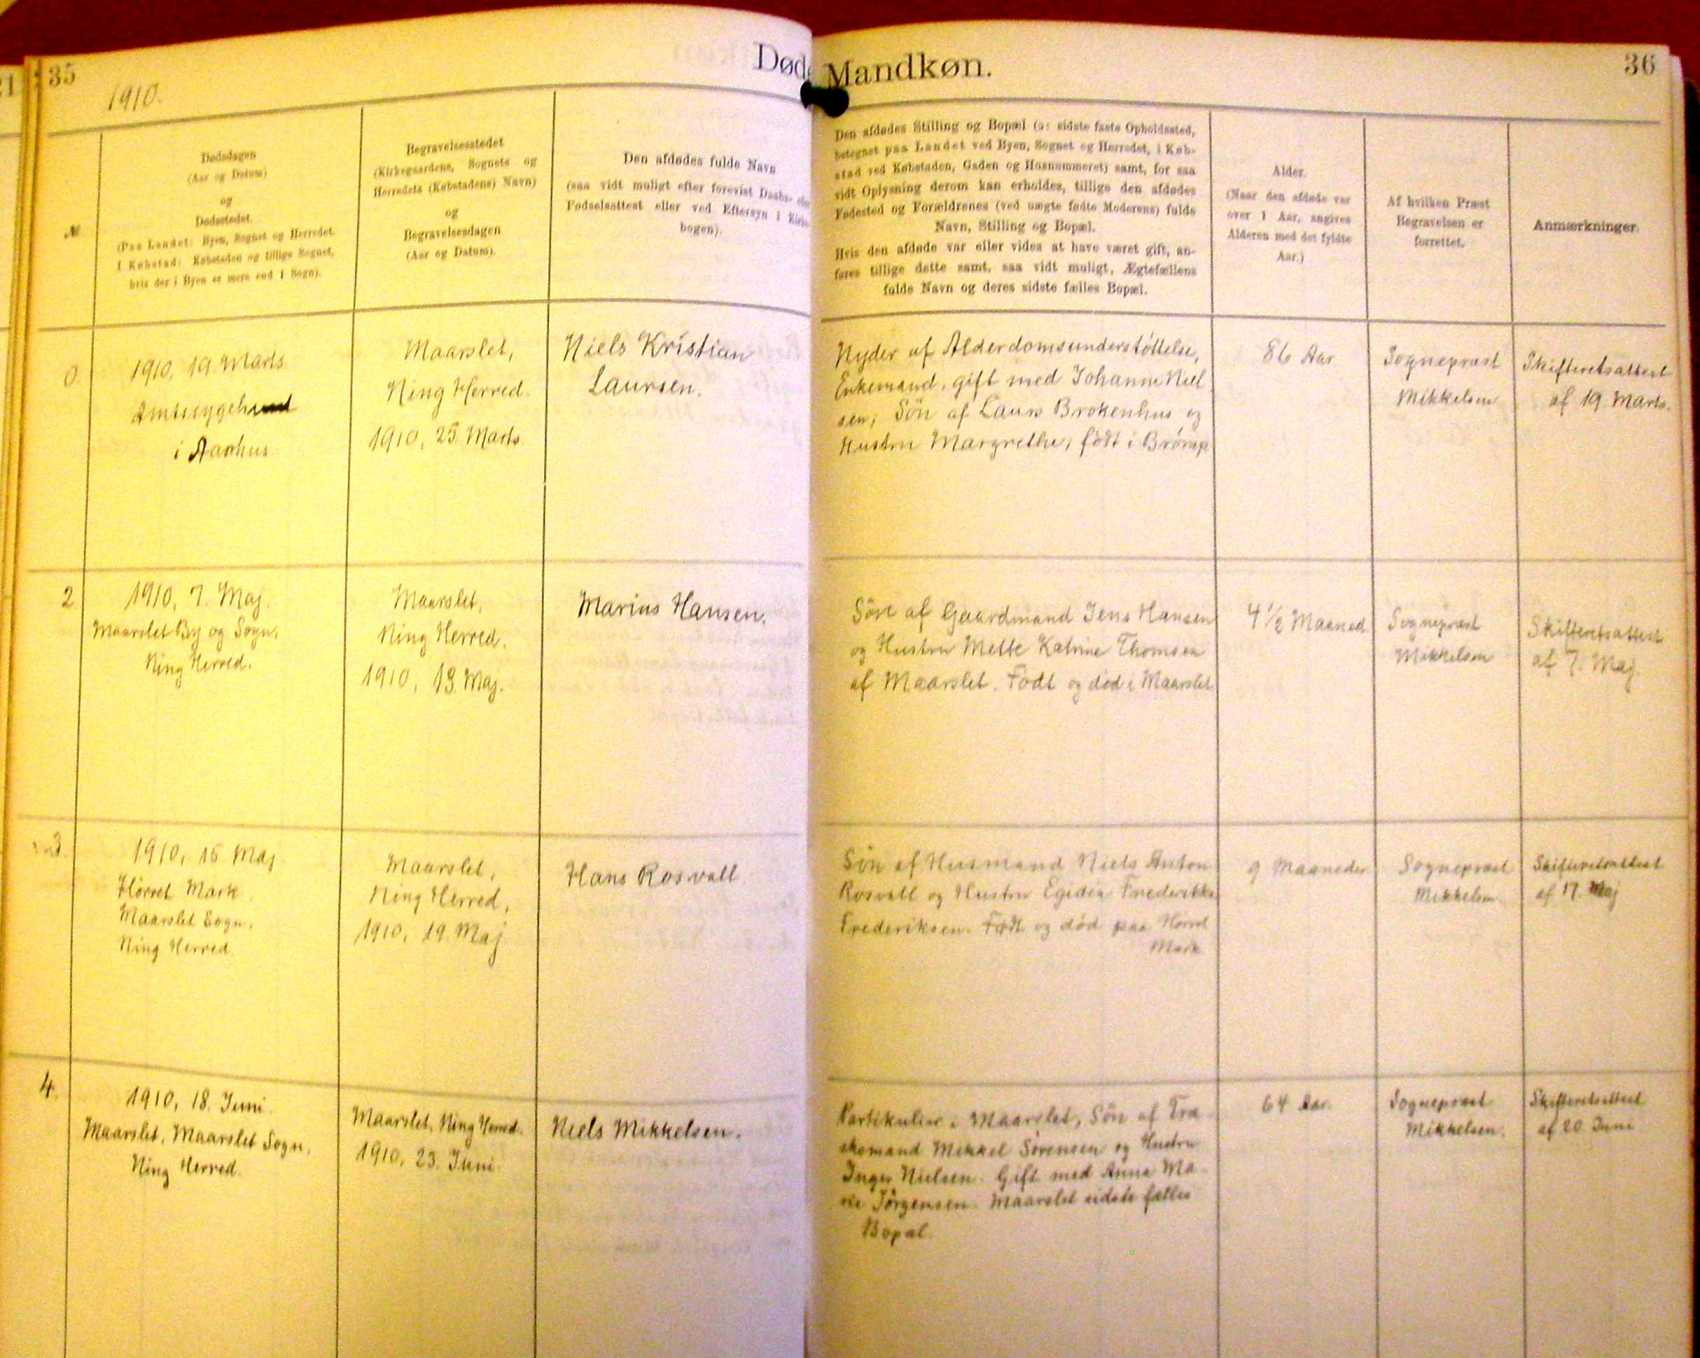 35
1910.
Døde
Mandkøn.
36
№
Dødsdagen
(Aar og Datum)
og
Dødsstedet.
(Paa Landet: Byen, Sognet og Herredet.
I Købstad: Købstaden og tillige Sognet,
hvis der i Byen er mere end 1 Sogn).
Begravelsesstedet
(Kirkegaardens, Sognets og
Herredets (Købstadens) Navn)
og
Begravelsesdagen
(Aar og Datum).
Den afdødes fulde Navn
(saa vidt muligt efter forevist Daabs-
Fødselsattest eller ved Eftersyn i
bogen).
Den afdødes Stilling og Bopæl (o: sidste faste Opholdssted,
betegnet paa Landet ved Byen, Sognet og Herredet, i Køb-
stad ved Købstaden, Gaden og Husnummeret) samt, for saa
vidt Oplysning derom kan erholdes, tillige den afdødes
Fødested og Forældrenes (ved uægte fødte Moderens) fulde
Navn, Stilling og Bopæl.
Hvis den afdøde var eller vides at have været gift, an-
føres tillige dette samt, saa vidt muligt, Ægtefællens
fulde Navn og deres sidste fælles Bopæl.
Alder.
(Naar den afdøde var
over 1 Aar, angives
Alderen med det fyldte
Aar.)
Af hvilken Præst
Begravelsen er
forrettet.
Anmærkninger.
1910, 19. Marts
i Aarhus
Maarslet,
Ning Herred.
1910, 25. Marts
Niels Kristian
Laursen.
Nyder af Alderdomsunderstøttelse,
Enkemand, gift med Johanne Niel
sen; Søn af Laurs Brokenhus og
Hustru Margrethe; født i Brørup
86 Aar
Sognepræst
Mikkelsen
Skifteretsattest
af 19. Marts.
2
1910, 7. Maj.
Maarslet By og Sogn,
Ning Herred.
Maarslet,
Ning Herred.
1910, 13. Maj.
Marius Hansen.
Søn af Gaardmand Jens Hansen
og Hustru Mette Katrine Thomsen
af Maarslet. Født og død i Maarslet
4 1/2 Maaned
Sognepræst
Mikkelsen
Skifteretsattest
af 7. Maj.
3.
1910, 16 Maj
Hørret Mark
Maarslet Sogn,
Ning Herred.
Maarslet,
Ning Herred,
1910, 19. Maj
Hans Rosvall
Søn af Husmand Niels Anton
Rosvall og Hustru Egidia Frederikke
Frederiksen. Født og død paa Hørret
Mark
9 Maaneder
Sognepræst
Mikkelsen
Skifteretsattest
af 17. Maj
4.
1910, 18. Juni.
Maarslet, Maarslet Sogn,
Ning Herred.
Maarslet, Ning Herred.
1910, 23. Juni.
Niels Mikkelsen.
Partikulier i Maarslet, Søn af Træ-
skomand Mikkel Sørensen og Hustru
Inger Nielsen. Gift med Anna Ma-
rie Jörgensen. Maarslet sidste fælles
Bopæl.
64 Aar.
Sognepræst
Mikkelsen.
Skifteretsattest
af 20. Juni